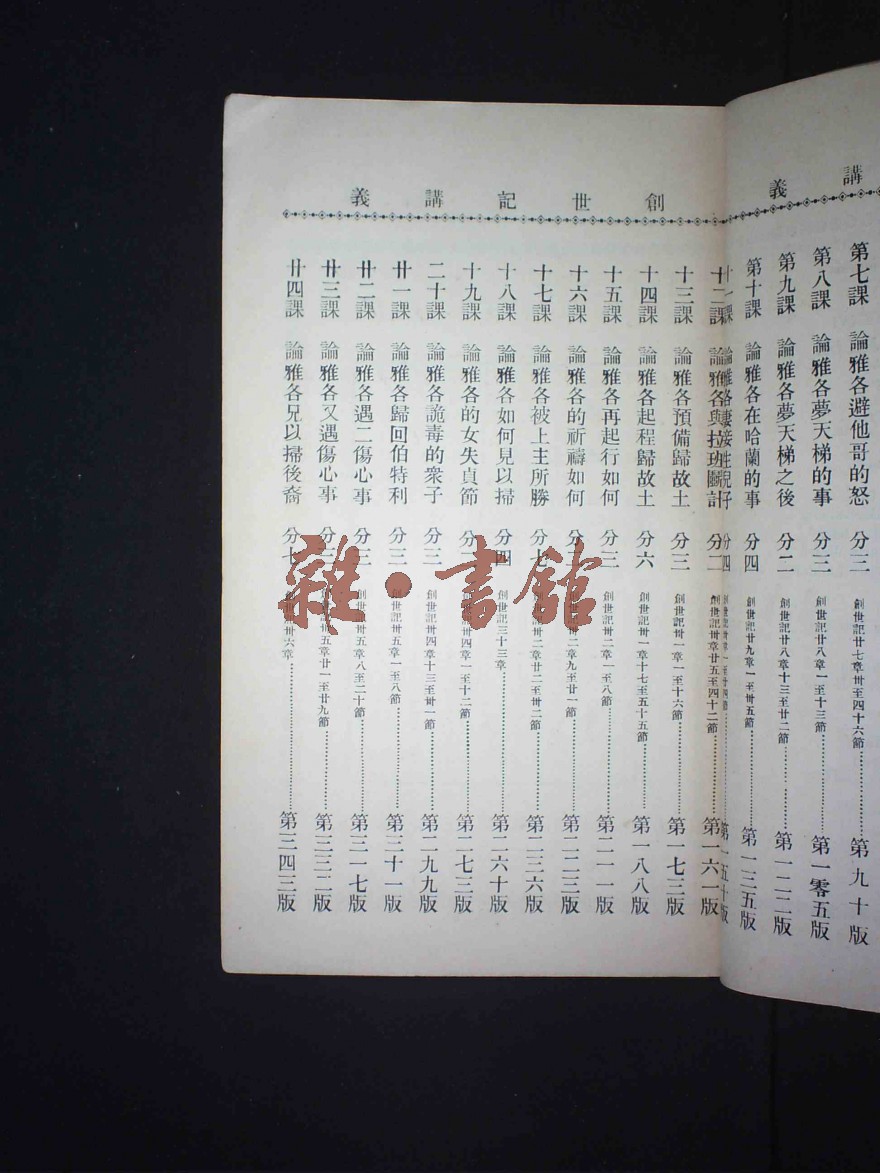 講義
第七課 論雅各避他哥的怒 分三 創世記廿七章卅至四十六節 第九十版
第八課 論雅各夢天梯的事 分三 創世記廿八章一至十三節 第一零五版
第九課 論雅各夢天梯之後 分二 創世記廿八章十三至廿二節 第一二二版
第十課 論雅各在哈蘭的事 分四 創世記廿九章一至卅五節 第一三五版
十一課 論雅各 分四 第一五十版
創世記講義
十二課 論雅各與拉班鬭計 分二 創世記卅章廿五至四十二節 第一六一版
十三課 論雅各預備歸故土 分三 創世記卅一章一至十六節 第一七三版
十四課 論雅各起程歸故土 分六 創世記卅一章十七至五十五節 第一八八版
十五課 論雅各再起行如何 分三 創世記卅二章一至八節 第二一一版
十六課 論雅各的祈禱如何 分 創世記卅二章九至廿一節 第二二三版
十七課 論雅各被上主所勝 分七 創世記卅二章廿二至卅二節 第二三六版
十八課 論雅各如何見以掃 分四 創世記三十三章 第二六十版
十九課 論雅各的女失貞節 分 創世記卅四章一至十二節 第二七三版
二十課 論雅各詭毒的衆子 分三 創世記卅四章十三至卅一節 第二九九版
廿一課 論雅各歸回伯特利 分三 創世記卅五章一至八節 第三十一版
廿二課 論雅各遇二傷心事 分三 創世記卅五章八至二十節 第三一七版
廿三課 論雅各又遇傷心事 分三 創世記卅五章廿一至廿九節 第三三二版
廿四課 論雅各兄以掃後裔 分七 創世記卅六章 第三四三版
雜·書館